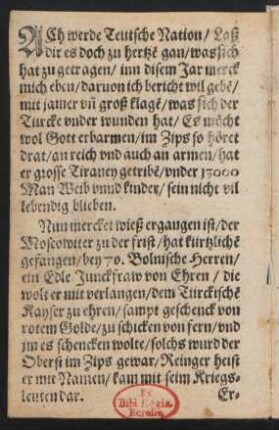 ACh werde Teutsche Nation / Laß
dir es doch zu hertzẽ gan / was sich
hat zu getragen / inn disem Jar merck
mich eben / daruon ich bericht wil gebẽ /
mit jamer vñ groß klagẽ / was sich der
Türcke vnder wunden hat / Es möcht
wol Gott erbarmen / im Zips so höret
drat / an reich vnd auch an armen / hat
er grosse Tiraney getribẽ / vnder 13000
Man Weib vnnd kinder / sein nicht vil
lebendig blieben.
Nun mercket wieß ergangen ist / der
Moscowiter zu der frist / hat kürtzlichẽ
gefangen / bey 70. Bolnische Herren /
ein Edle Junckfraw von Ehren / die
wolt er mit verlangen / dem Türckischẽ
Kayser zu ehren / sampt geschenck von
rotem Golde / zu schicken von fern / vnd
jm es schencken wolte / solchs wurd der
Oberst im Zips gewar / Reinger heist
er mit Namen / kam mit seim Kriegs-
leuten dar. Er-
Ex
Bibl. Regia
Berolin.